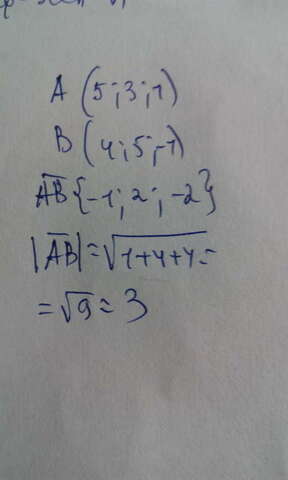 A (5; 3; 1)
B (4; 5; -1)
AB {-1; 2; -2}
|AB| = √1+4+4 =
= √9 = 3